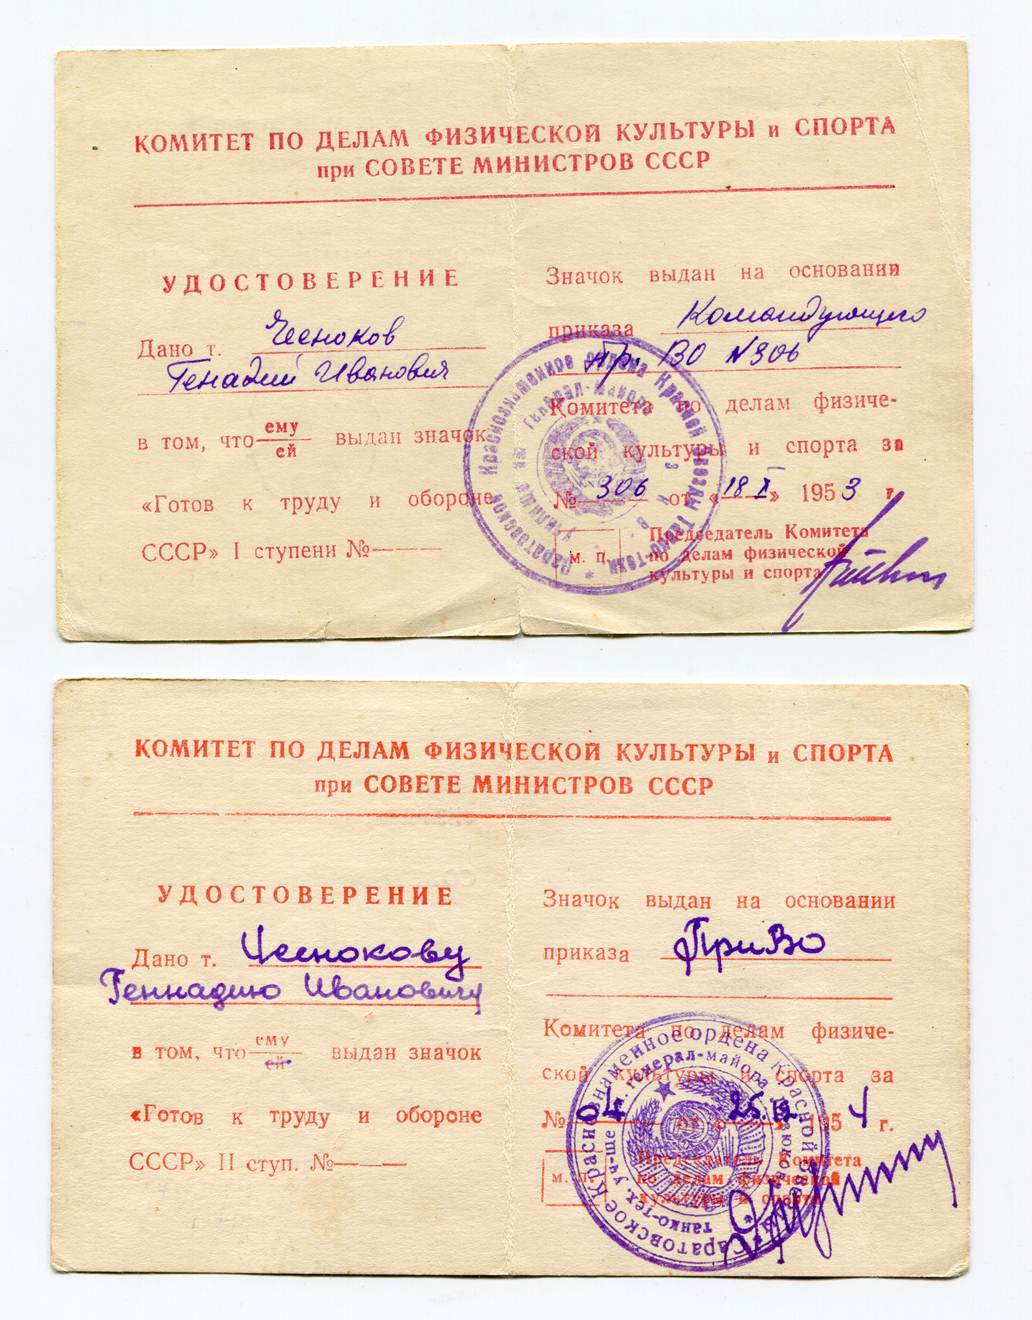 КОМИТЕТ ПО ДЕЛАМ ФИЗИЧЕСКОЙ КУЛЬТУРЫ и СПОРТА
при СОВЕТЕ МИНИСТРОВ СССР
УДОСТОВЕРЕНИЕ
Дано т. Чесноков
Генадий Иванович
в том, что ему
ей
выдан значок
«Готов к труду и обороне
СССР» I ступени №
Значок выдан на основании
приказа Командующего
При ВО N 306
Комитета по делам физиче-
ской культуры и спорта за
№ 306 от «18 X» 1953 г.
м. п.
Председатель Комитета
по делам физической
культуры и спорта
Саратовское Краснознаменное ордена Красной Звезды Танко-техн
училище им. генерал-майора
КОМИТЕТ ПО ДЕЛАМ ФИЗИЧЕСКОЙ КУЛЬТУРЫ и СПОРТА
при СОВЕТЕ МИНИСТРОВ СССР
УДОСТОВЕРЕНИЕ
Дано т. Чеснокову
Геннадию Ивановичу
в том, что ему
ей
выдан значок
«Готов к труду и обороне
СССР» II ступ. №
Значок выдан на основании
приказа ПриВО
Комитета по делам физиче-
ской культуры и спорта за
№ 04 от « » 1954 г.
м. п.
Председатель Комитета
по делам физической
культуры и спорта
Саратовское Краснознаменное ордена Красной Звезды
танко-тех. уч-ще генерал-майора